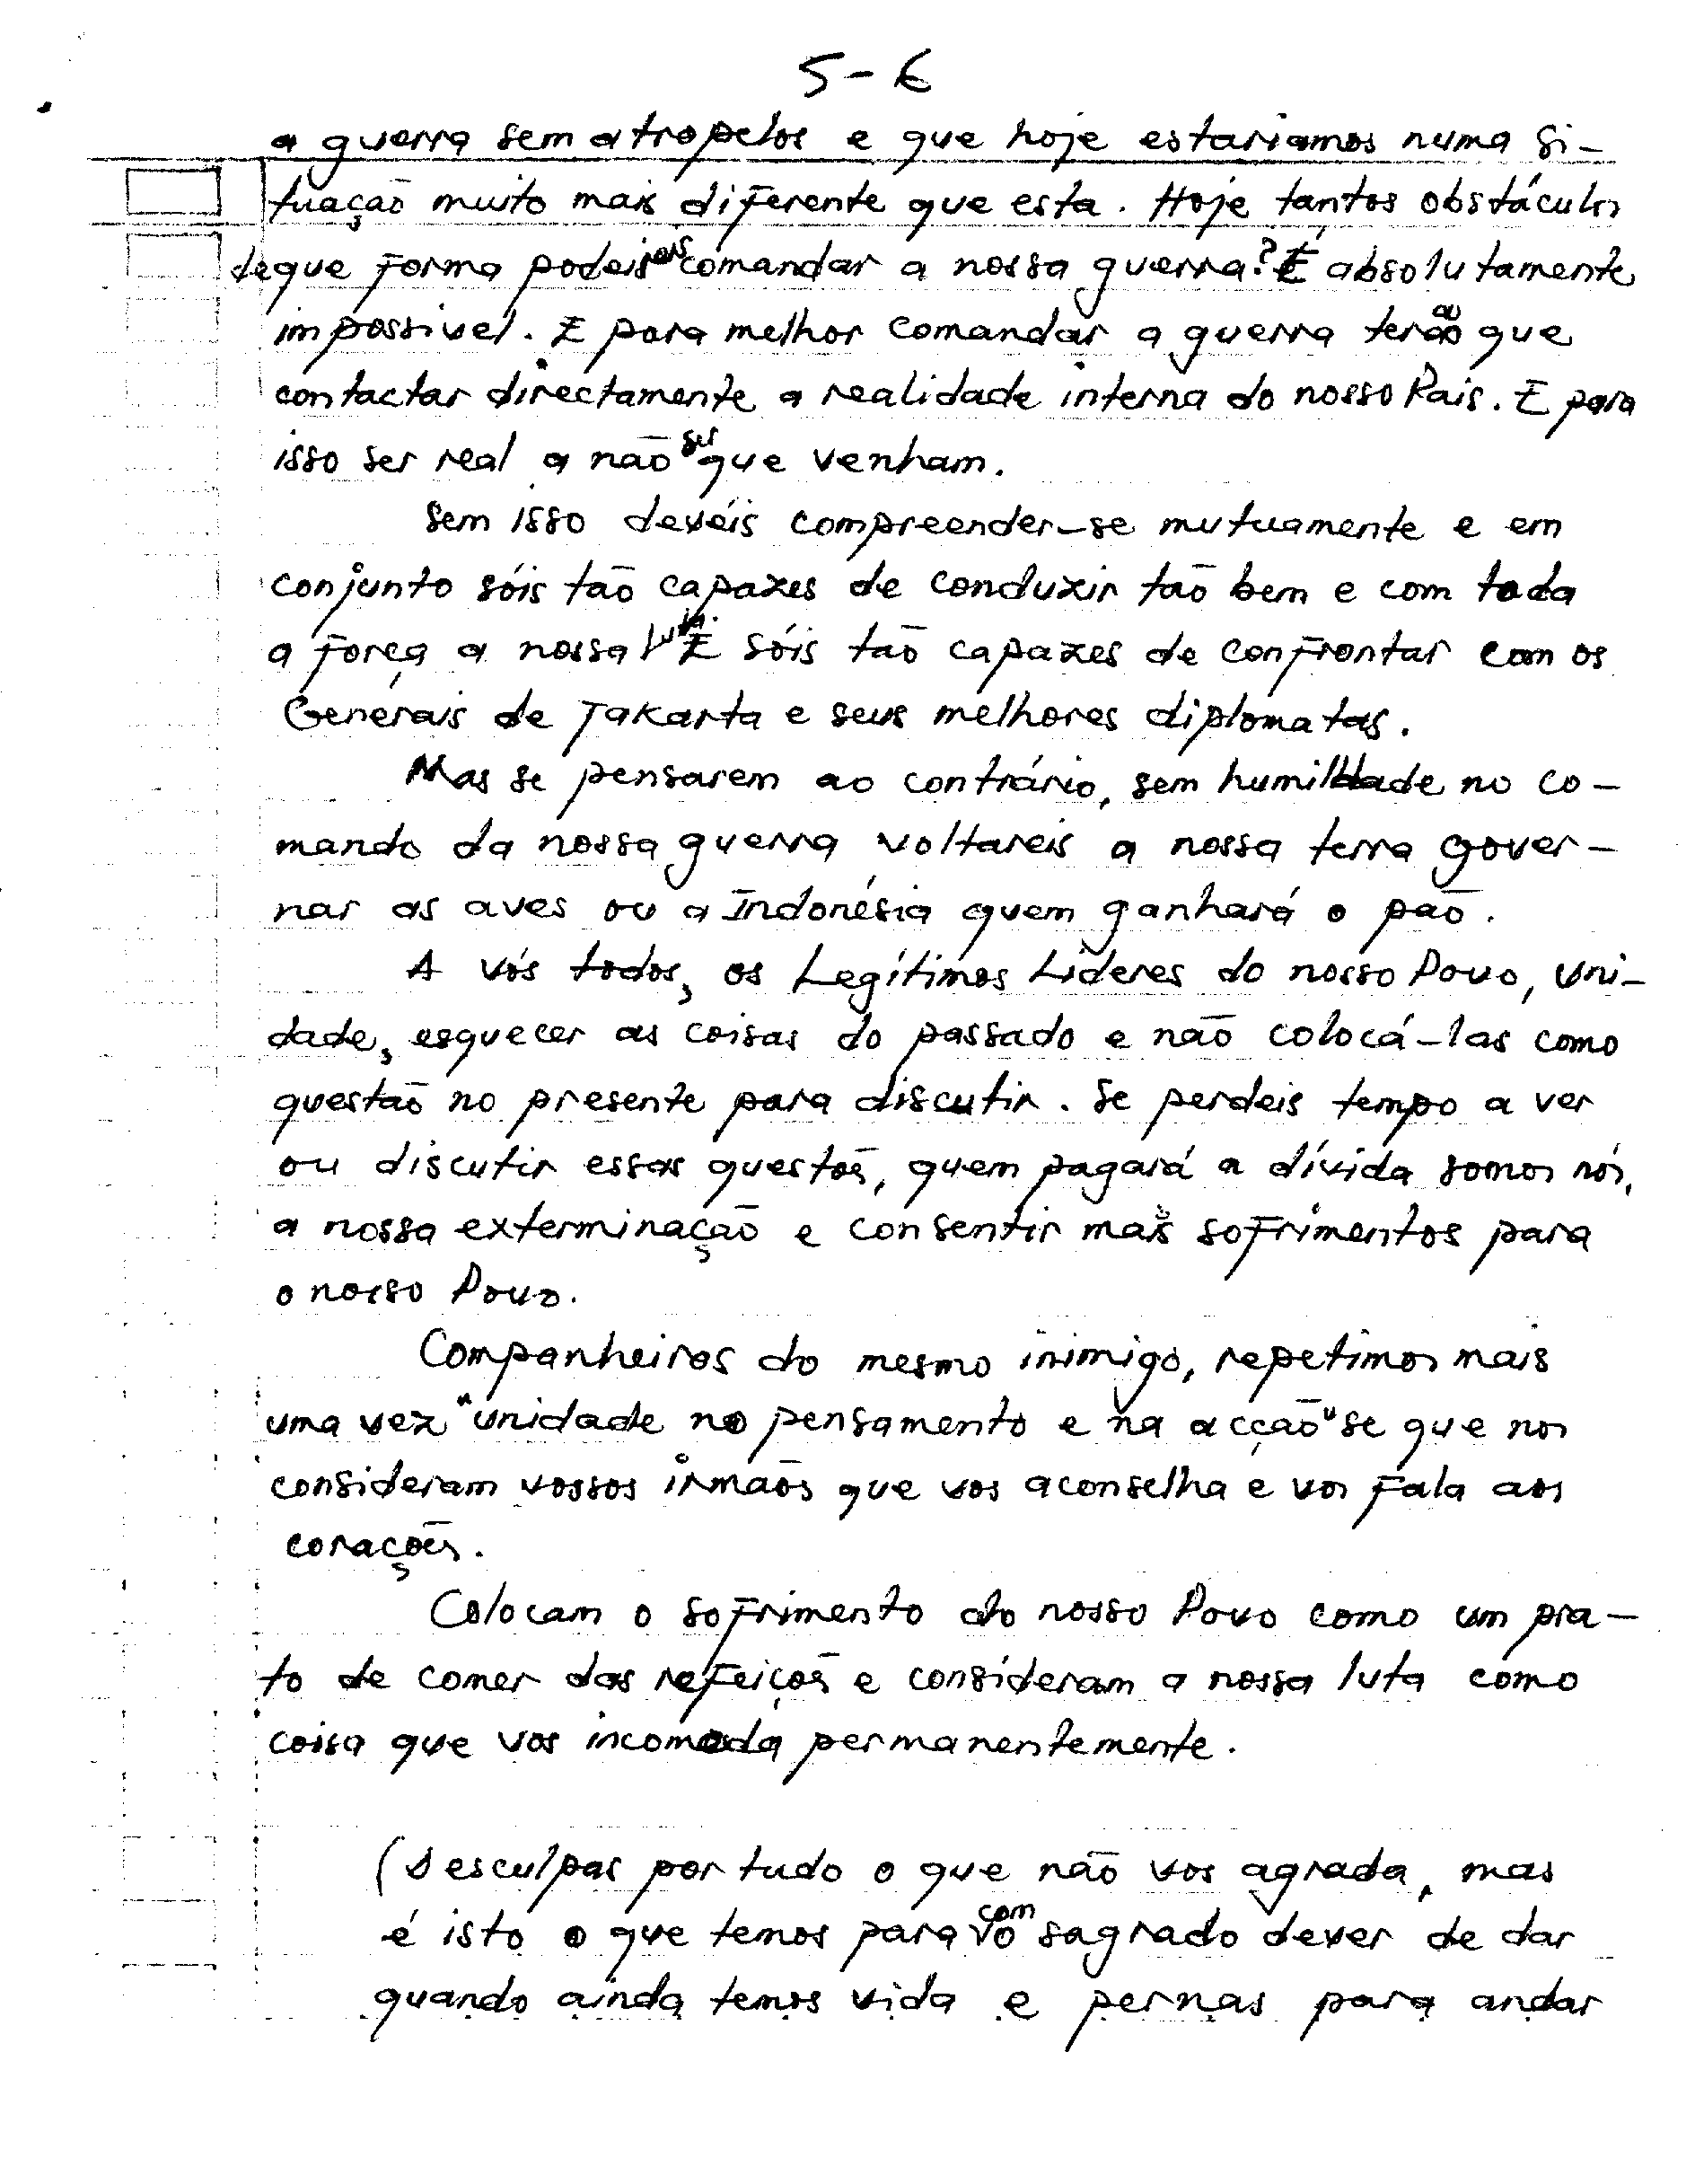 5-6
a guerra sem atropelos e que hoje estariamos numa si-
tuação muito mais diferente que esta. Hoje tantos obstáculos
de que forma podeis comandar a nossa guerra? É absolutamente
impossivel. E para melhor comandar a guerra terão que
contactar directamente a realidade interna do nosso Pais. E para
isso ser real a não ser que venham.
Sem isso devéis compreender-se mutuamente e em
conjunto sóis tão capazes de conduzir tão bem e com toda
a força a nossa luta. E sóis tão capazes de confrontar com os
Generais de Jakarta e seus melhores diplomatas.
Mas se pensarem ao contrário, sem humildade no co-
mando da nossa guerra voltareis a nossa terra gover-
nar as aves ou a Indonésia quem ganhará o pão.
A vós todos, os Legítimos Líderes do nosso Povo, uni-
dade, esquecer as coisas do passado e não colocá-las como
questão no presente para discutir. Se perdeis tempo a ver
ou discutir essas questões, quem pagará a dívida somos nós,
a nossa exterminação e consentir mais sofrimentos para
o nosso Povo.
Companheiros do mesmo inimigo, repetimos mais
uma vez "unidade no pensamento e na acção" se que nos
consideram vossos irmãos que vos aconselha e vos fala aos
corações.
Colocam o sofrimento do nosso Povo como um pra-
to de comer das refeições e consideram a nossa luta como
coisa que vos incomoda permanentemente.
(Desculpas por tudo o que não vos agrada, mas
é isto o que temos para vós com o sagrado dever de dar
quando ainda temos vida e pernas para andar